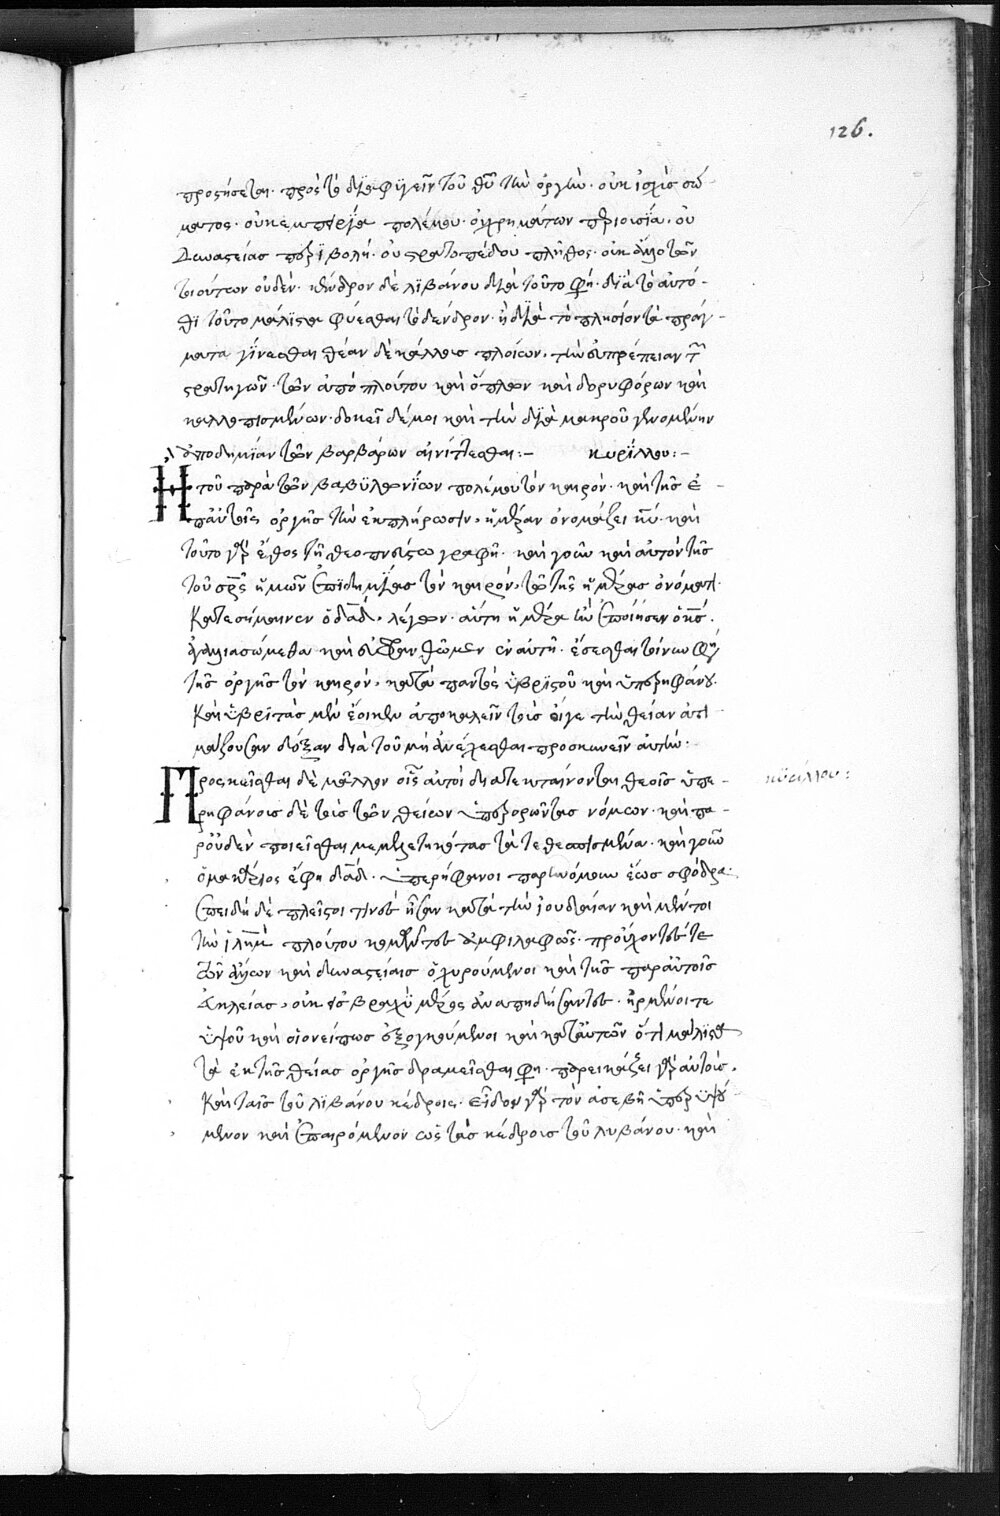 126.
προστήσεται· πρὸς τὸ διαφυγεῖν τοῦ θυ τὴν ὀργὴν· οὐκ ἰσχὺς σώ-
ματος· οὐκ ἐμπειρία πολέμου· οὐ χρημάτων περιουσία· οὐ
δυναστείας περιβολή· οὐ στρατοπέδου πλῆθος· οὐκ ἄλλο τῶν
τοιούτων οὐδέν· κένδρον δὲ λιβάνου διὰ τοῦτο φη· διὰ τὸ αὐτό-
θι τοῦτο μάλιστα φύεσθαι τὸ δένδρον· ἢ διὰ τὸ πλησίον τὰ πράγ-
ματα γίνεσθαι θέαν δὲ κάλλους πλοίων, τὴν εὐπρέπειαν τ
στρατηγῶν· τῶν ἀπὸ πλούτου καὶ ὅπλων καὶ δορυφόρων καὶ
καλλωπισμένων· δοκεῖ δέ μοι καὶ τὴν διὰ μακροῦ γενομένην
ἀποδημίαν τῶν βαρβάρων αἰνίττεσθαι:- κυρίλλου:-
Ητοῦ παρὰ τῶν βαβυλωνίων πολέμου τὸν καιρὸν· καὶ τῆς ἐ-
π αὐτοῖς ὀργῆς τὴν ἐκπλήρωσιν, ἡμέραν ὀνομάζει κυ· καὶ
τοῦτο γὰρ ἔθος τῇ θεοπνεύστω γραφῇ· καὶ γοῦν καὶ αὐτὸν τῆς
τοῦ σρς ἡμῶν ἐπιδημίας τὸν καιρόν, τῶ τῆς ἡμέρας ὀνόματι·
κατεσήμαινεν ὁ δαδ, λέγων· αὕτη ἡ ἡμέρα ἣν ἐποίησεν ὁ κς·
ἀγαλλιασώμεθα καὶ εὐφρανθῶμεν ἐν αὐτῇ· ἔσεσθαι τοίνυν φη
τῆς ὀργῆς τὸν καιρὸν, κατὰ παντὸς ὑβριστοῦ καὶ ὑπερηφάνου·
Καὶ ὑβριστὰς μὲν ἔοικεν ἀποκαλεῖν τοὺς εἴγε τὴν θείαν ἀτι
μάζουσαν δόξαν διὰ τοῦ μὴ ἀνέχεσθαι προσκυνεῖν αὐτήν·
Προσκεῖσθαι δὲ μᾶλλον οἷς αὐτοὶ διατεκταίνονται θεοῖς ὑπε-
ρηφάνους δὲ τοὺς τῶν θείων ὑπερορῶντας νόμων· καὶ πα-
ρ οὐδὲν ποιεῖσθαι μεμελετηκότας τὰ τεθεσπισμένα· καὶ γοῦν
ὁ μακάριος ἔφη δαδ· ὑπερήφανοι παρηνόμουν ἕως σφόδρα·
Ἐπειδὴ δὲ πλεῖστοι τινὲς ἦσαν κατὰ τὴν ἰουδαίαν καὶ μέντοι
τὴν ἱλημ πλούτου κομῶντες ἀμφιλαφῶς· προὔχοντες τε
τῶν ἄλλων καὶ δυναστείαις ὀχυρούμενοι καὶ τῆς παρ αὐτοῖς
ἀγελείας, οὐκ εἰς βραχὺ μέρος ἀναπηδήσαντες· ᾐρμένοι τε
ὑψοῦ καὶ οἱονείπως ἐξογκούμενοι καὶ κατ αὐτῶν ὅτι μάλιστα
τὰ ἐκ τῆς θείας ὀργῆς δραμεῖσθαι φη· παρεικάζει γὰρ αὐτοὺς,
Καὶ ταῖς τοῦ λιβάνου κέδροις· εἶδον γὰρ τὸν ἀσεβῆ ὑπερυψού
μενον καὶ ἐπαιρόμενον ὡς τὰς κέδρους τοῦ λιβάνου· καὶ
κυρίλλου: